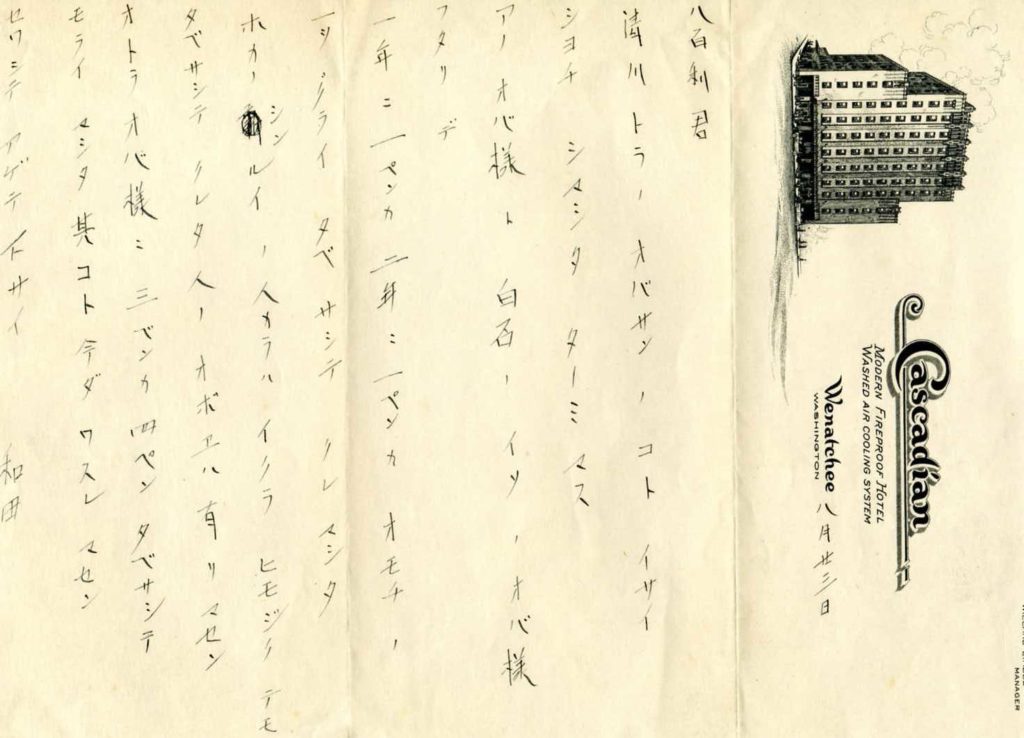 Cascadian
MODERN FIREPROOF HOTEL
WASHED AIR COOLING SYSTEM
Wenatchee
WASHINGTON
MANAGER
八月廿三日
八百利君
清川トラノオバサンノコトイサイ
シヨチシマシタターミマス
アノオバ様ト白石ノイツノオバ様
フタリデ
一年ニ一ペンカ二年ニ一ペンカオモチノ
一シクライタベサシテクレマシタ
ホカノシンルイノ人カラハイクラヒモジクテモ
タベサシテクレタ人ノオボエハ有リマセン
オトラオバ様ニ三ベンカ四ペンタベサシテ
モライマシタ其コト今ダワスレマセン
セワシテアゲテイサイ
和田